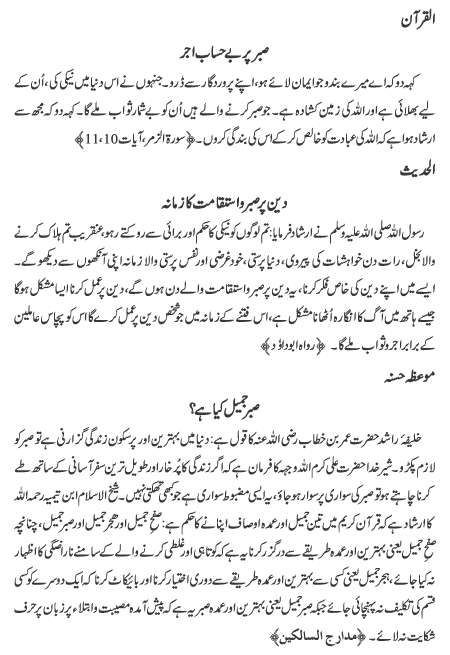 القرآن
صبر پر بے حساب اجر
کہہ دو کہ اے میرے بندو جو ایمان لائے ہو، اپنے پروردگار سے ڈرو۔ جنہوں نے اس دنیا میں نیکی کی، اُن کے
لیے بھلائی ہے اور اللہ کی زمین کشادہ ہے۔ جو صبر کرنے والے ہیں اُن کو بے شمار ثواب ملے گا۔ کہہ دو کہ مجھ سے
ارشاد ہوا ہے کہ اللہ کی عبادت کو خالص کر کے اس کی بندگی کروں۔ ﴿سورۃ الزمر، آیات 10، 11﴾
الحدیث
دین پر صبر و استقامت کا زمانہ
رسول اللہ صلی اللہ علیہ وسلم نے ارشاد فرمایا: تم لوگوں کو نیکی کا حکم اور برائی سے روکتے رہو، عنقریب تم ہلاک کرنے
والا بخل، رات دن خواہشات کی پیروی، دنیا پرستی، خود غرضی اور نفس پرستی والا زمانہ اپنی آنکھوں سے دیکھو گے۔
ایسے میں اپنے دین کی خاص فکر کرنا، یہ دین پر صبر و استقامت والے دن ہوں گے، دین پر عمل کرنا ایسا مشکل ہوگا
جیسے ہاتھ میں آگ کا انگارہ اُٹھانا مشکل ہے، اس فتنے کے زمانہ میں جو شخص دین پر عمل کرے گا اس کو پچاس عاملین
کے برابر اجر و ثواب ملے گا۔ ﴿رواہ ابوداؤد﴾
موعظہ حسنہ
صبر جمیل کیا ہے؟
خلیفۂ راشد حضرت عمر بن خطاب رضی اللہ عنہ کا قول ہے: دنیا میں بہترین اور پرسکون زندگی گزارنی ہے تو صبر کو
لازم پکڑو۔ شیر خدا حضرت علی کرم اللہ وجہہ کا فرمان ہے کہ اگر زندگی کا پُرخار اور طویل ترین سفر آسانی کے ساتھ طے
کرنا چاہتے ہو تو صبر کی سواری پر سوار ہو جاؤ، یہ ایسی مضبوط سواری ہے جو کبھی تھکتی نہیں۔ شیخ الاسلام ابن تیمیہ رحمہ اللہ
کا ارشاد ہے کہ قرآن کریم میں تین جمیل اور عمدہ اوصاف اپنانے کا حکم ہے: صفح جمیل اور ھجر جمیل اور صبر جمیل، چنانچہ
صفح جمیل یعنی بہترین اور عمدہ طریقے سے درگزر کرنا یہ ہے کہ کوتاہی اور غلطی کرنے والے کے سامنے ناراضگی کا اظہار
نہ کیا جائے، ہجر جمیل یعنی کسی سے بہترین اور عمدہ طریقے سے دوری اختیار کرنا اور بائیکاٹ کرنا کہ ایک دوسرے کو کسی
قسم کی تکلیف نہ پہنچائی جائے جبکہ صبر جمیل یعنی بہترین اور عمدہ صبر یہ ہے کہ پیش آمدہ مصیبت و ابتلاء پر زبان پر حرف
شکایت نہ لائے۔ ﴿مدارج السالکین﴾